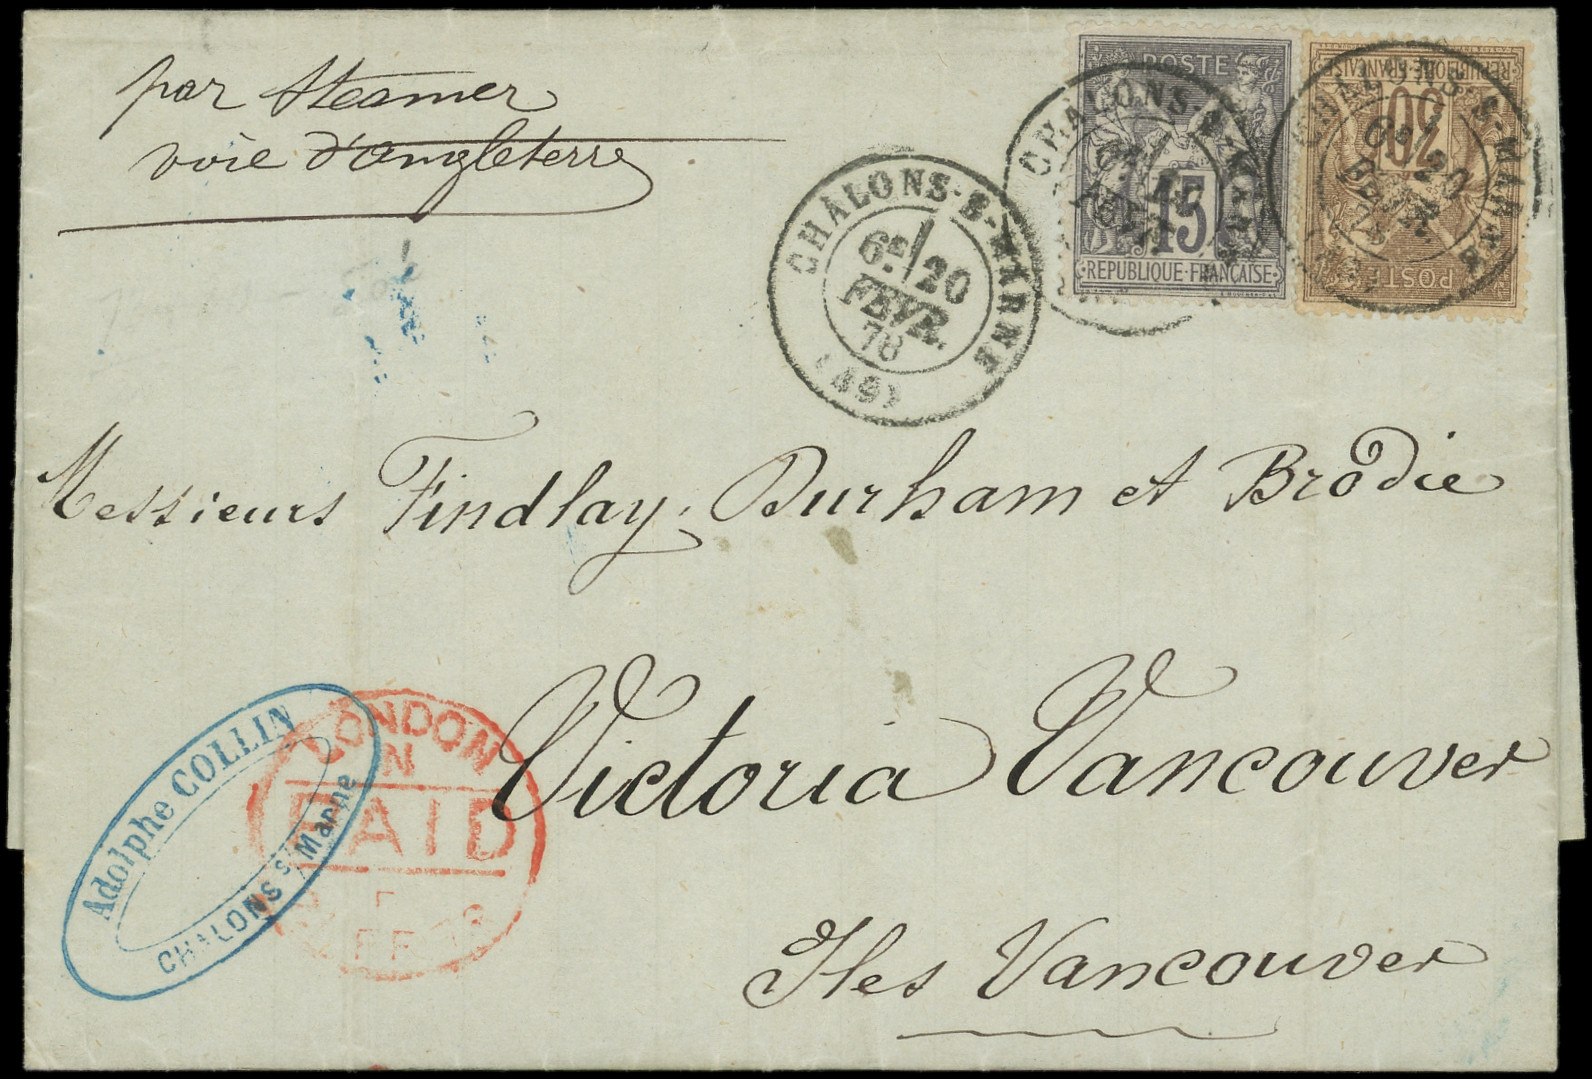 par Steamer
voie d'angleterre
POSTE
15
REPUBLIQUE-FRANÇAISE
REPUBLIQUE-FRANÇAISE
30
POSTE
CHALONS-S-MARNE
6E/20
FEVR.
78
(49)
CHALONS-S-MARNE
CHALONS-S-MARNE
20
Messieurs Findlay, Durham et Brodie
Victoria Vancouver
Iles Vancouver
LONDON
PAID
Adolphe COLLIN
CHALONS s/Marne